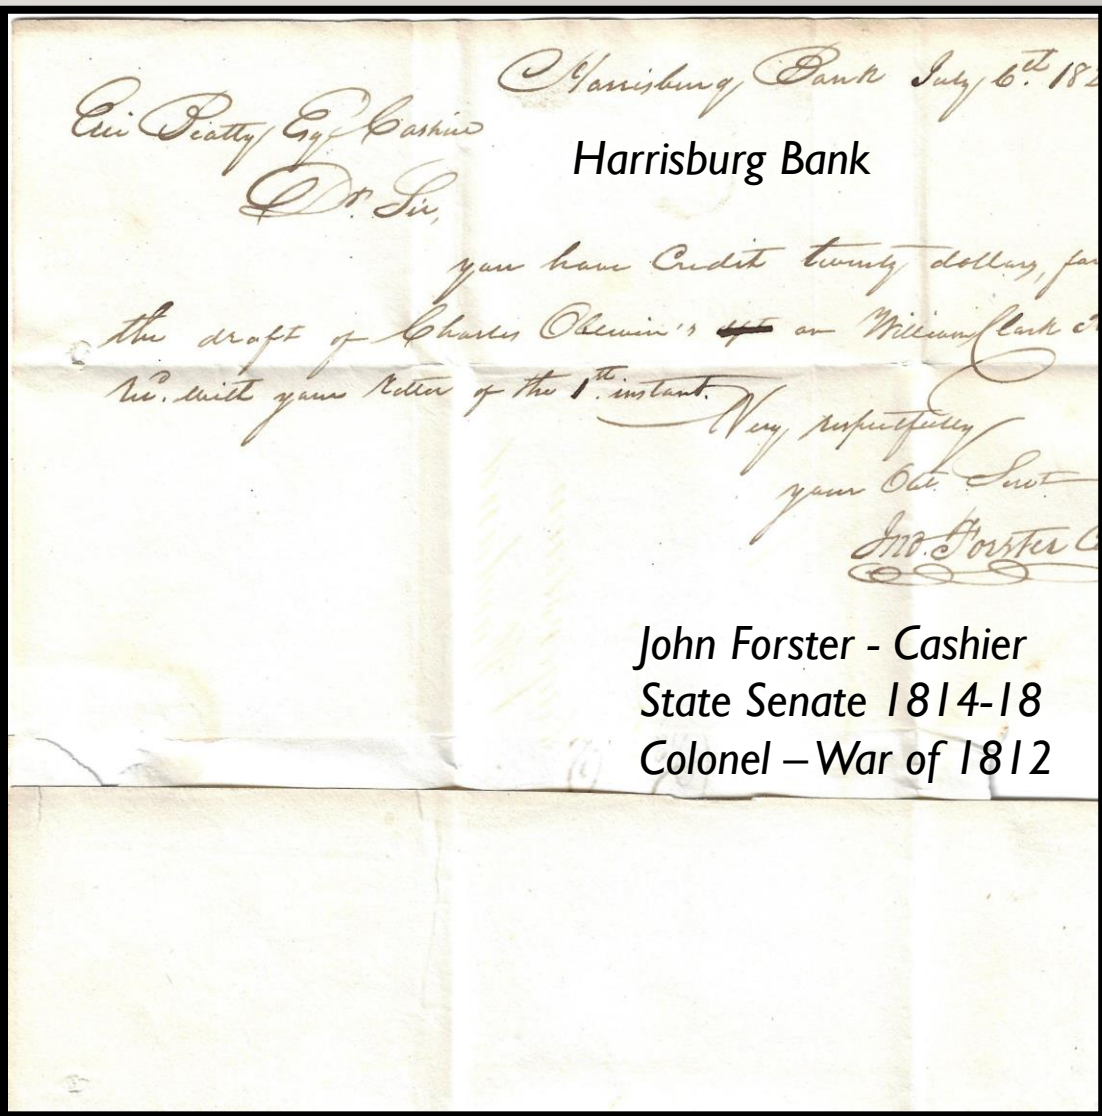 Harrisburg Bank July 6th. 182
Beatty Esqr Cashier
Dr. Sir,
Harrisburg Bank
you have Credit twenty dollars, for
the draft of Charles on William Clark
with your letter of the 1th. instant.
Very respectfully
your Obt. Servt
Jno. Forster C
John Forster - Cashier
State Senate 1814-18
Colonel – War of 1812